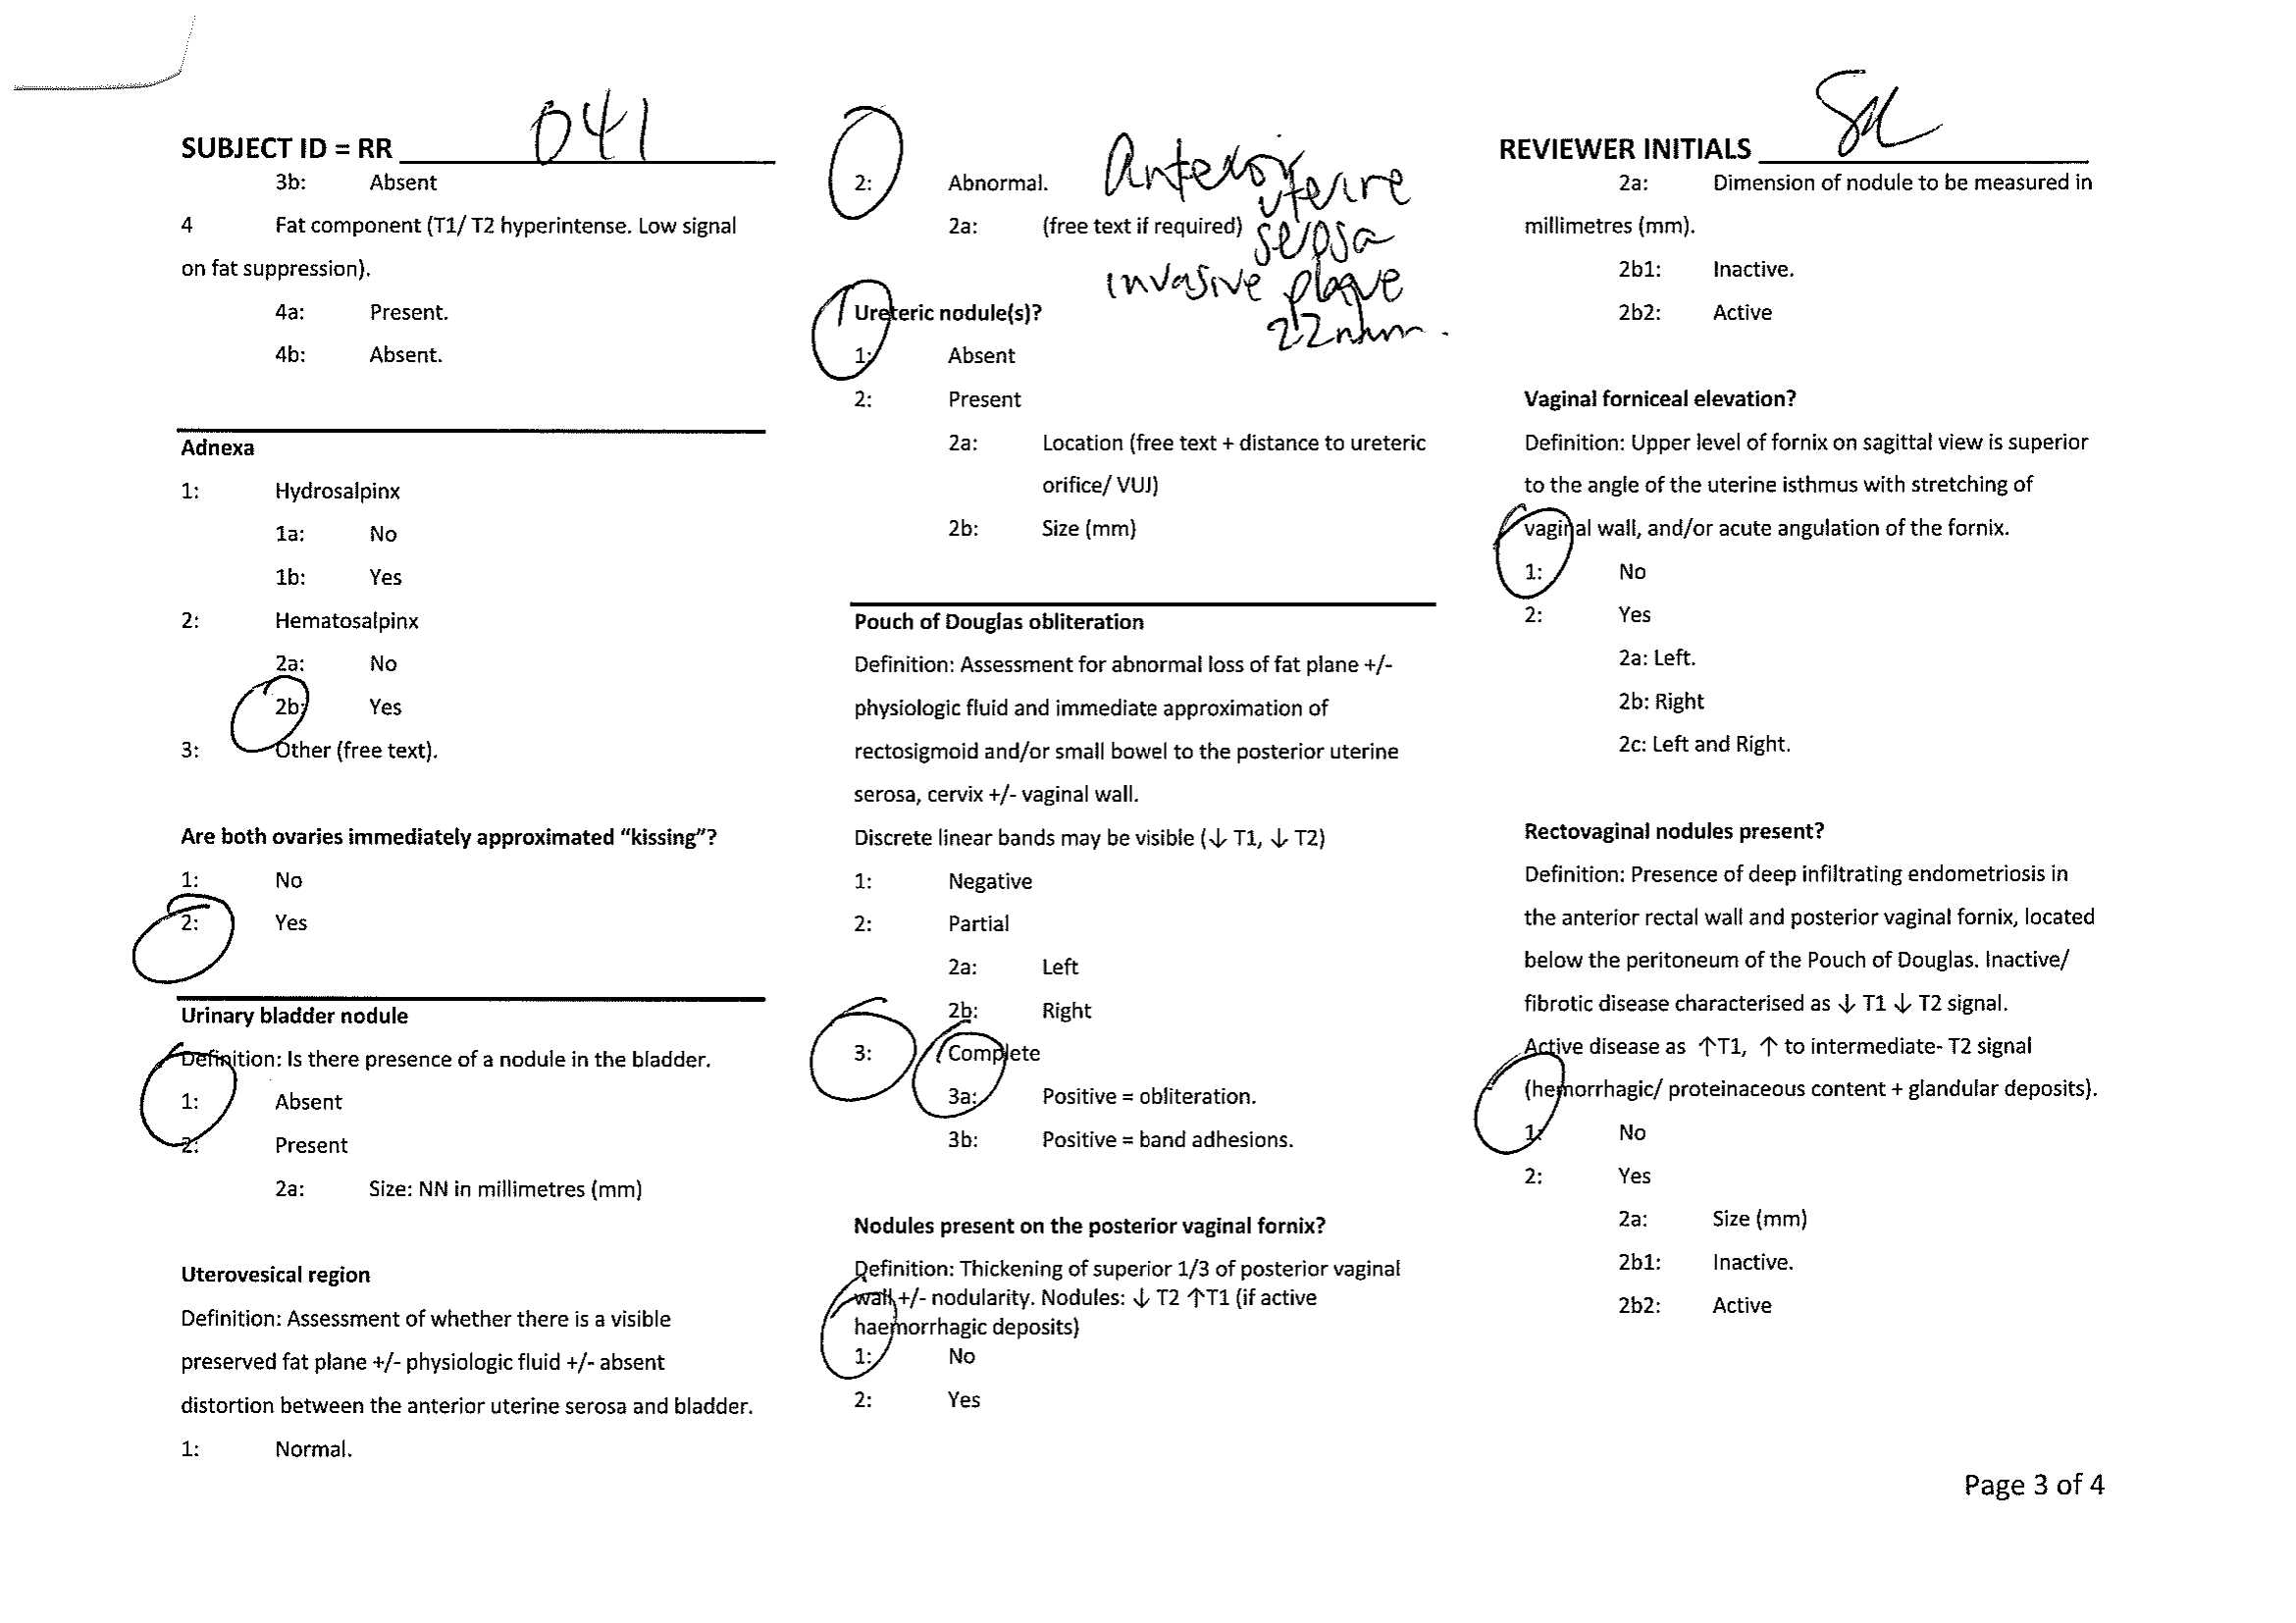 SUBJECT ID = RR 041
3b: Absent
4 Fat component (T1/ T2 hyperintense. Low signal
on fat suppression).
4a: Present.
4b: Absent.
Adnexa
1: Hydrosalpinx
1a: No
1b: Yes
2: Hematosalpinx
2a: No
2b: Yes
3: Other (free text).
Are both ovaries immediately approximated “kissing”?
1: No
2: Yes
Urinary bladder nodule
Definition: Is there presence of a nodule in the bladder.
1: Absent
2: Present
2a: Size: NN in millimetres (mm)
Uterovesical region
Definition: Assessment of whether there is a visible
preserved fat plane +/- physiologic fluid +/- absent
distortion between the anterior uterine serosa and bladder.
1: Normal.
2: Abnormal.
2a: (free text if required)
Anterior
uterine
serosa
invasive plaque
22mm.
Ureteric nodule(s)?
1: Absent
2: Present
2a: Location (free text + distance to ureteric
orifice/ VUJ)
2b: Size (mm)
Pouch of Douglas obliteration
Definition: Assessment for abnormal loss of fat plane +/-
physiologic fluid and immediate approximation of
rectosigmoid and/or small bowel to the posterior uterine
serosa, cervix +/- vaginal wall.
Discrete linear bands may be visible (↓ T1, ↓ T2)
1: Negative
2: Partial
2a: Left
2b: Right
3: Complete
3a: Positive = obliteration.
3b: Positive = band adhesions.
Nodules present on the posterior vaginal fornix?
Definition: Thickening of superior 1/3 of posterior vaginal
wall +/- nodularity. Nodules: ↓ T2 ↑T1 (if active
haemorrhagic deposits)
1: No
2: Yes
REVIEWER INITIALS
2a: Dimension of nodule to be measured in
millimetres (mm).
2b1: Inactive.
2b2: Active
Vaginal forniceal elevation?
Definition: Upper level of fornix on sagittal view is superior
to the angle of the uterine isthmus with stretching of
vaginal wall, and/or acute angulation of the fornix.
1: No
2: Yes
2a: Left.
2b: Right
2c: Left and Right.
Rectovaginal nodules present?
Definition: Presence of deep infiltrating endometriosis in
the anterior rectal wall and posterior vaginal fornix, located
below the peritoneum of the Pouch of Douglas. Inactive/
fibrotic disease characterised as ↓ T1 ↓ T2 signal.
Active disease as ↑T1, ↑ to intermediate- T2 signal
(hemorrhagic/ proteinaceous content + glandular deposits).
1: No
2: Yes
2a: Size (mm)
2b1: Inactive.
2b2: Active
Page 3 of 4